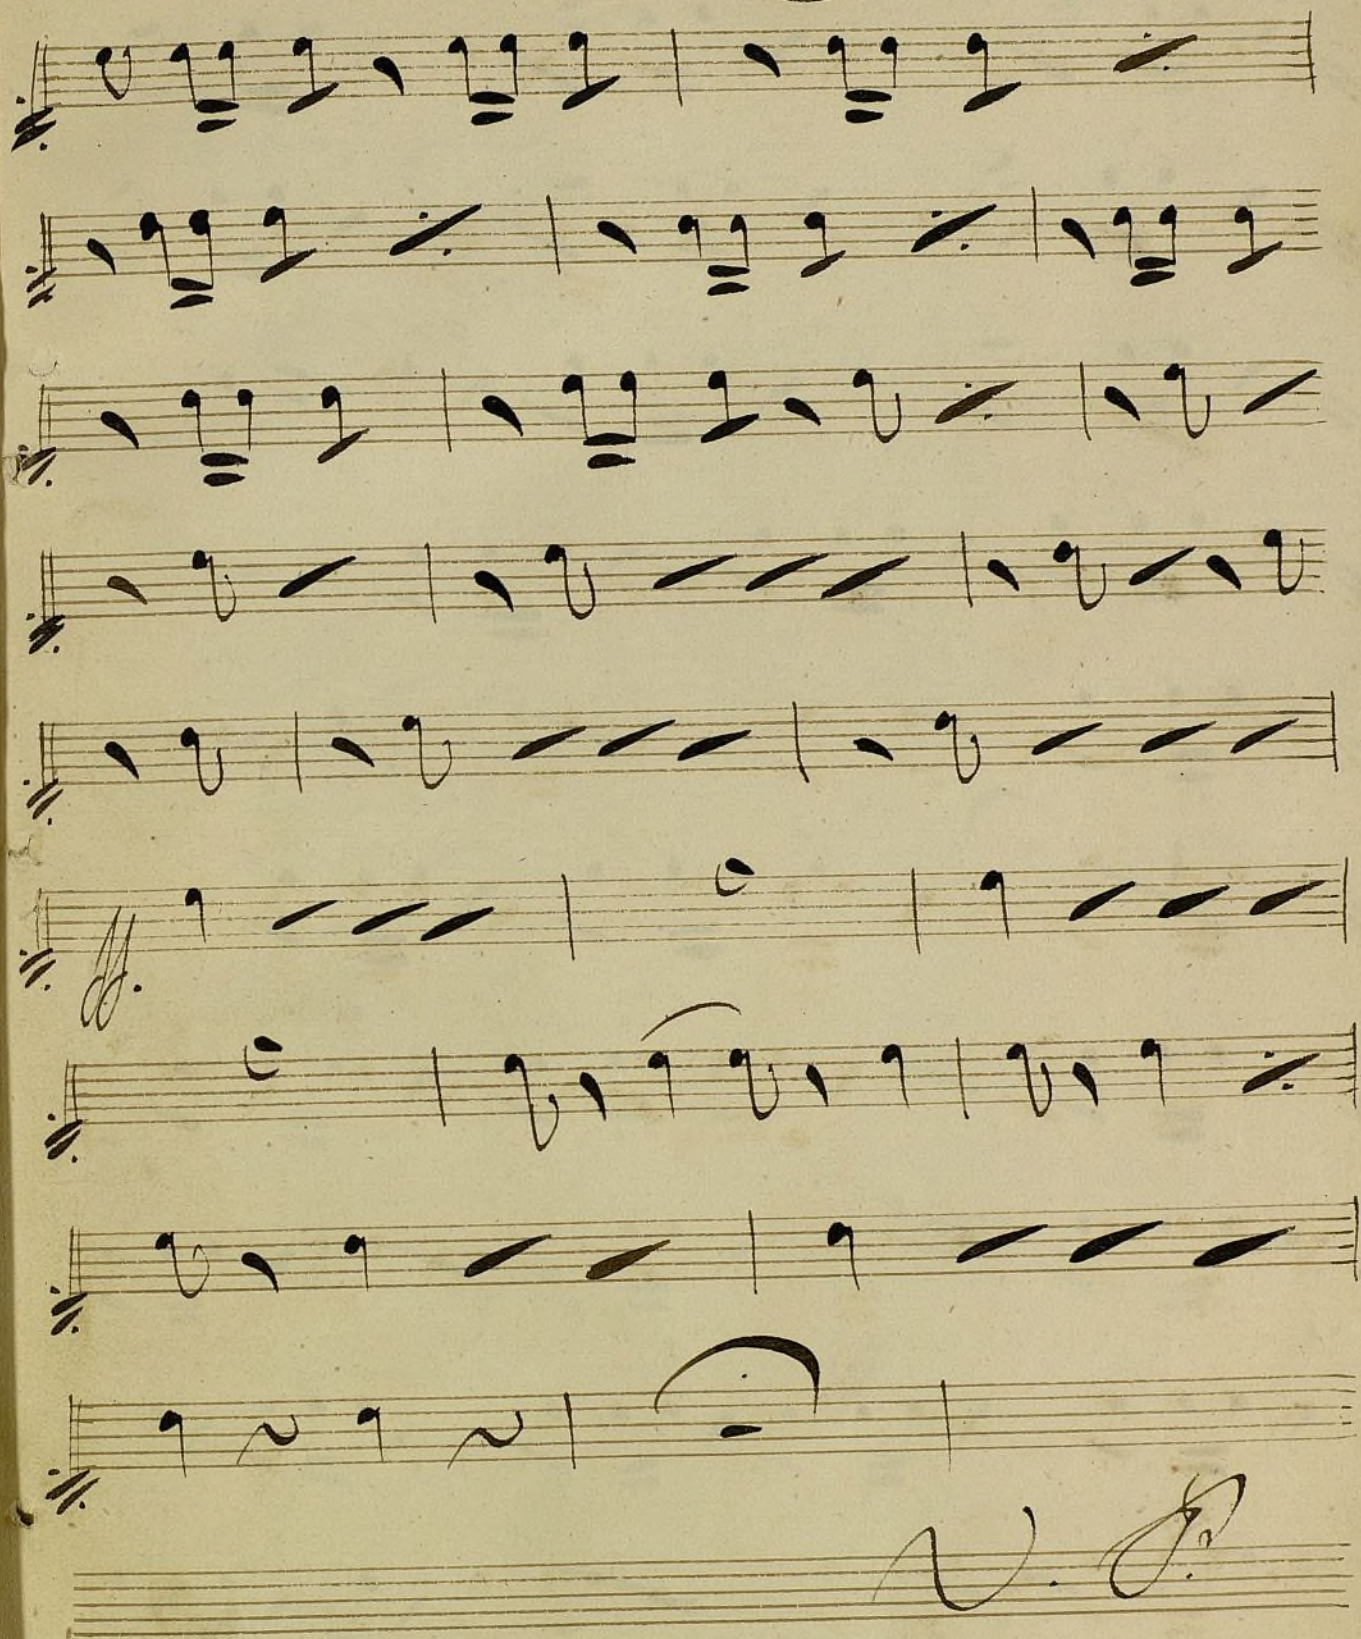 ff.
V. S.